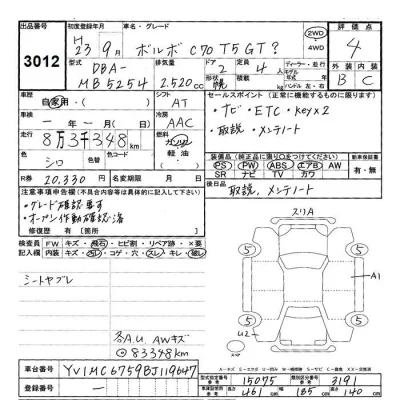 出品番号 3012
初度登録年月 H23 9月
車名・グレード ボルボ C70 T5 GT?
2WD 4WD
評価点 4
型式 DBA-MB5254
排気量 2,520 cc
ドア 2
定員 4
外装 B 内装 C
車歴 自家用
シフト AT
セールスポイント(正常に機能するものに限ります)
・ナビ・ETC・key×2
・取説・メンテノート
車検 ー年ー月
冷房 AAC
走行 8万3千348km
燃料 ガソリン 軽油
色 シロ
色替
色コード
装備品(純正品に限り○をつけてください)
PS PW ABS エアB AW
SR ナビ TV カワ
新車保証書 有・無
R券 20,330円
名変期限 月 日
後日品 取説、メンテノート
注意事項申告欄(不具合内容等は具体的に記入して下さい。)
・グレード確認要す
・オープン作動確認済
修復歴 有〔箇所
検査員記入欄
FW キズ・飛石・ヒビ割・リペア跡・×要
内装 キズ・汚レ・コゲ・穴・スレ・キレ・破レ
シートヤブレ
各A.U. AWキズ
83348km
スリA
5 5
A1
U2
5 5
スペア
車台番号 YV1MC6759BJ119647
登録番号 ー
型式指定番号 15075
類別区分番号 3191
長さ 461 cm
幅 185 cm
高さ 140 cm